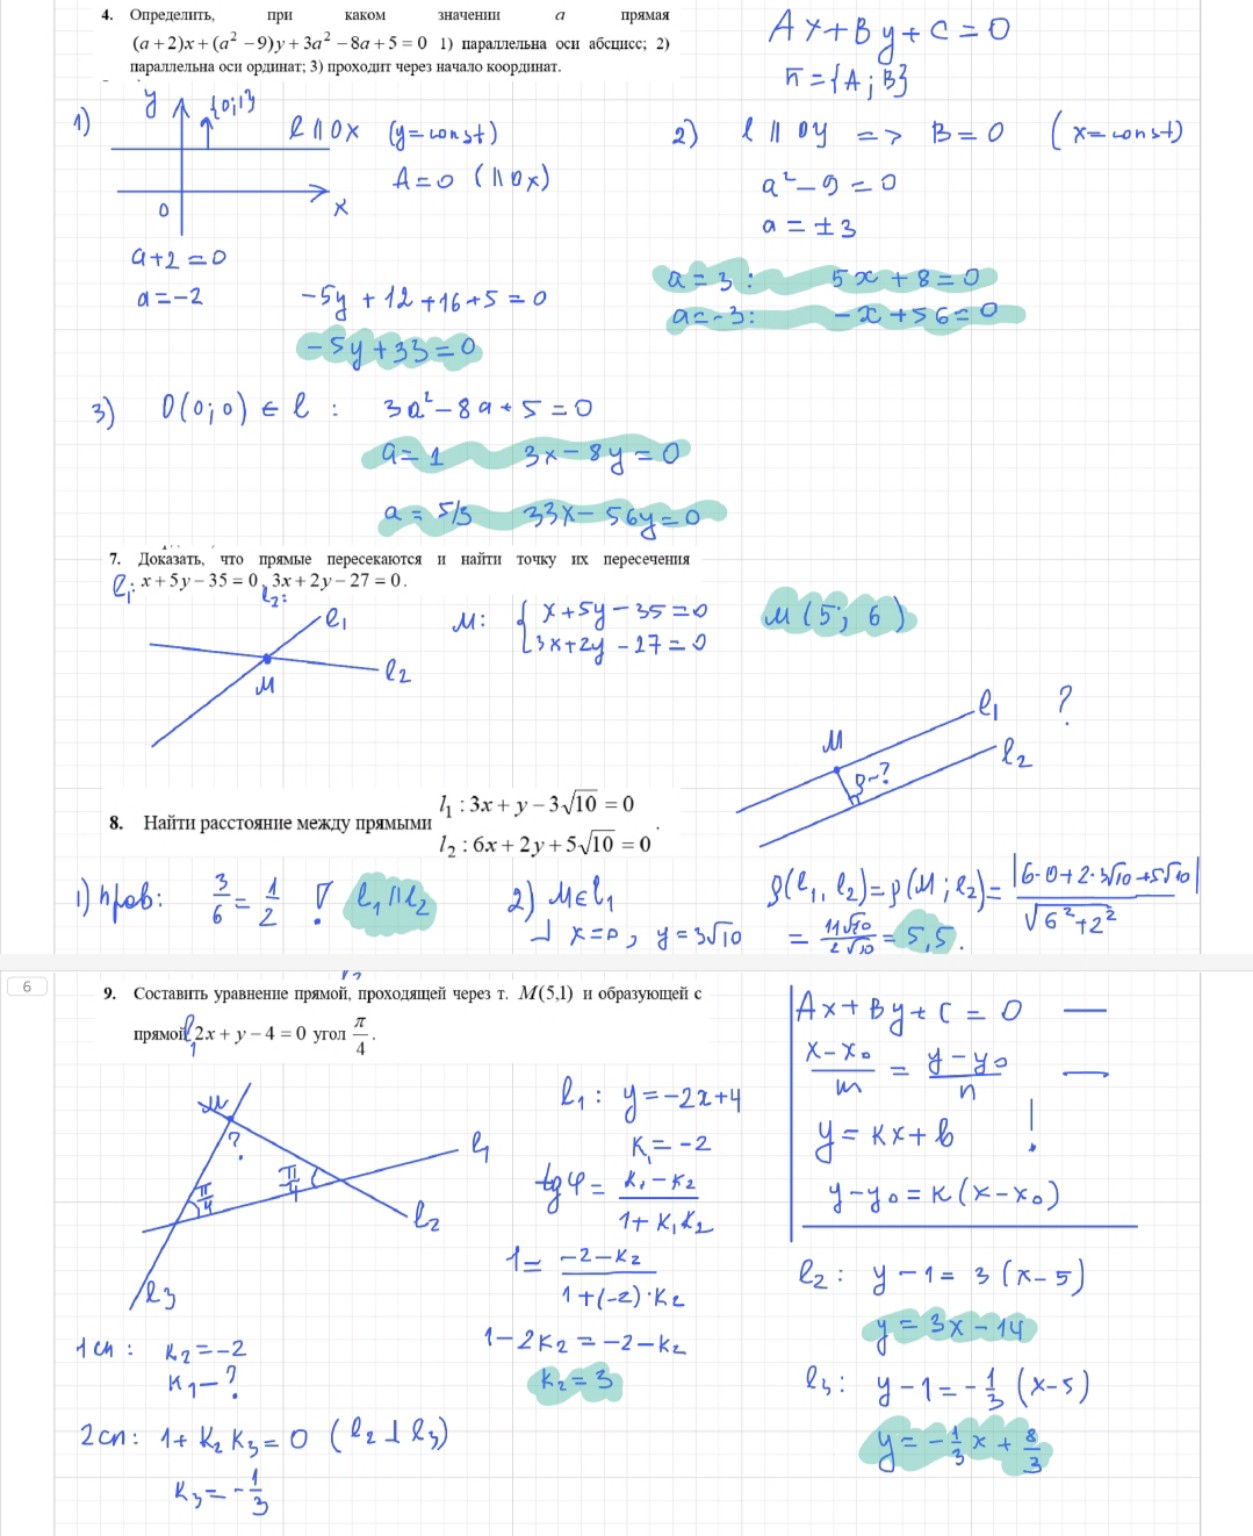 4. Определить, при каком значении a прямая
(a+2)x+(a²−9)y+3a²−8a+5=0 1) параллельна оси абсцисс; 2)
параллельна оси ординат; 3) проходит через начало координат.
Ax+By+C=0
n̄={A;B}
1)
y
{0;1}
l || OX (y=const)
A=0 (||OX)
0
x
a+2=0
a=-2
-5y+12+16+5=0
-5y+33=0
2) l || Oy => B=0 (x=const)
a²-9=0
a=±3
a=3: 5x+8=0
a=-3: -x+56=0
3) O(0;0) ∈ l : 3a²-8a+5=0
a=1 3x-8y=0
a=5/3 33x-56y=0
7. Доказать, что прямые пересекаются и найти точку их пересечения
l₁: x+5y−35=0, 3x+2y−27=0.
l₂:
l₁
l₂
M
M: { x+5y-35=0
3x+2y-27=0
M(5; 6)
l₁ ?
M
l₂
ρ-?
8. Найти расстояние между прямыми l₁:3x+y−3√10=0
l₂:6x+2y+5√10=0.
1) пров: 3/6=1/2 ! l₁||l₂
2) M∈l₁
⅃ x=0, y=3√10
ρ(l₁,l₂)=ρ(M;l₂)=|6·0+2·3√10+5√10|/√6²+2²
=11√10/2√10=5,5.
6
9. Составить уравнение прямой, проходящей через т. M(5,1) и образующей с
прямой l₁ 2x+y−4=0 угол π/4.
Ax+By+C=0 —
x-x₀/m=y-y₀/n —
y=kx+b !
y-y₀=k(x-x₀)
M
?
π/4
π/4
l₁
l₂
l₃
l₁: y=-2x+4
k₁=-2
tgφ=k₁-k₂/1+k₁k₂
1=-2-k₂/1+(-2)·k₂
1-2k₂=-2-k₂
k₂=3
1сп: k₂=-2
k₁-?
2сп: 1+k₂k₃=0 (l₂⊥l₃)
k₃=-1/3
l₂: y-1=3(x-5)
y=3x-14
l₃: y-1=-1/3(x-5)
y=-1/3x+8/3